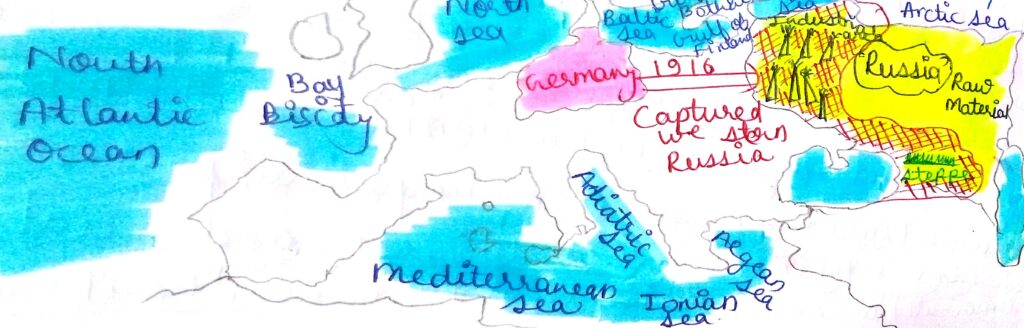 North
Atlantic
Ocean
Bay
Biscay
North
Sea
Baltic
Sea
Bothnia
Gulf of
Finland
Sea
Industrial
Arctic Sea
Germany
1916
Captured
western
Russia
Russia
Raw
Material
steppe
Adiatric
Sea
Aegean
Sea
Mediterranean
Sea
Ionian
Sea